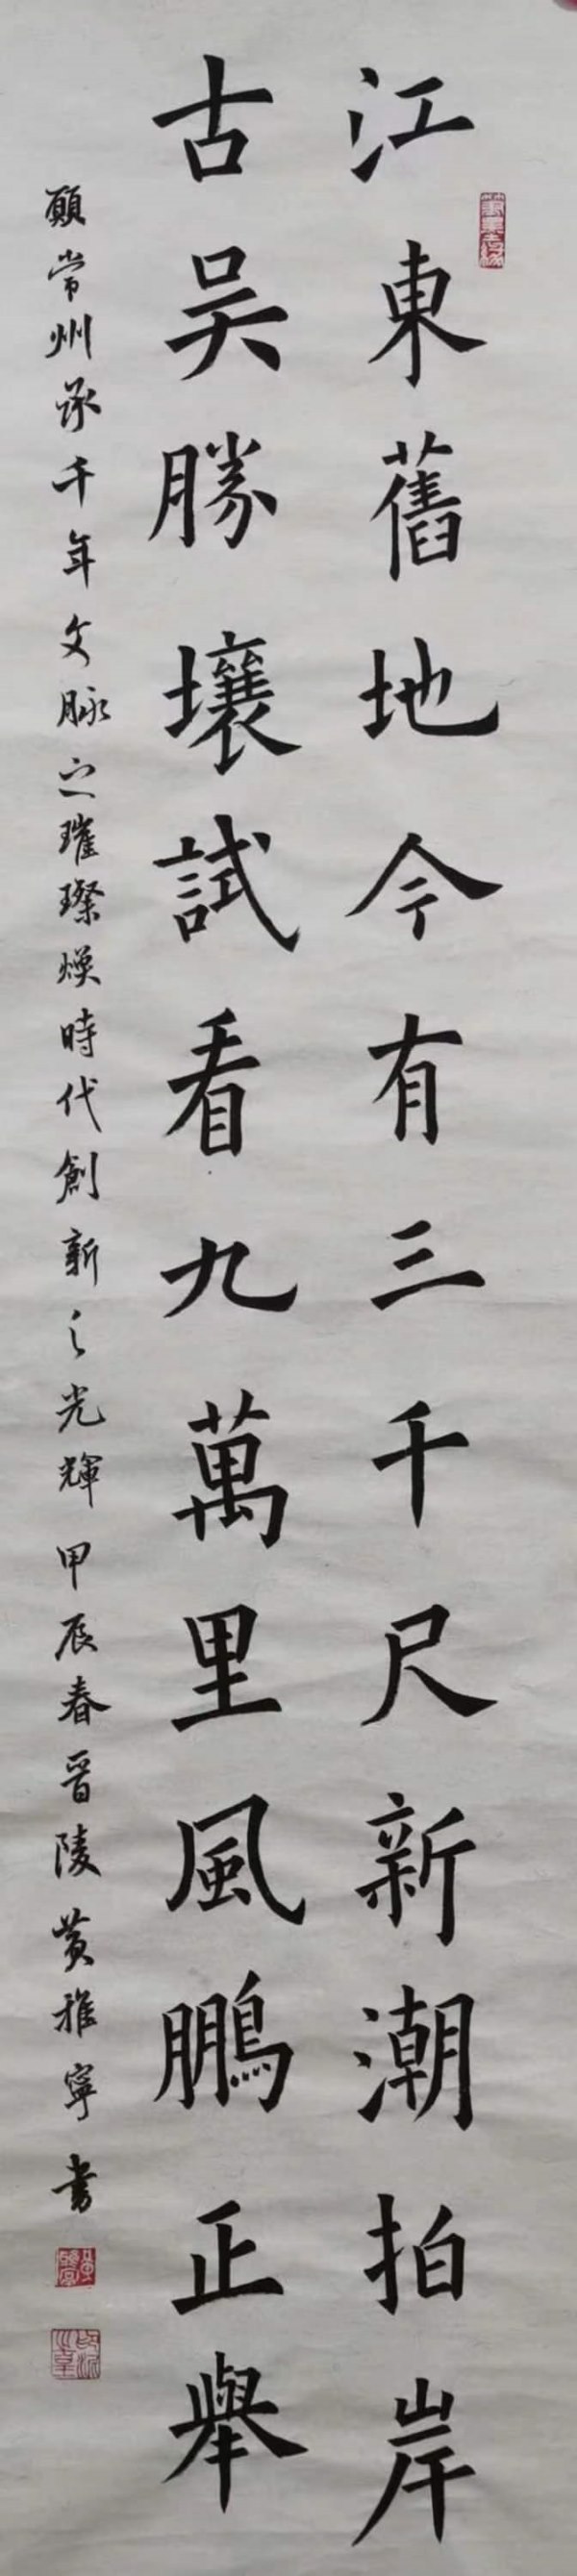 江東舊地今有三千尺新潮拍岸
古吴勝壤試看九萬里風鵬正舉
願常州承千年文脉之璀璨焕時代創新之光輝甲辰春晋陵黄雅寧書